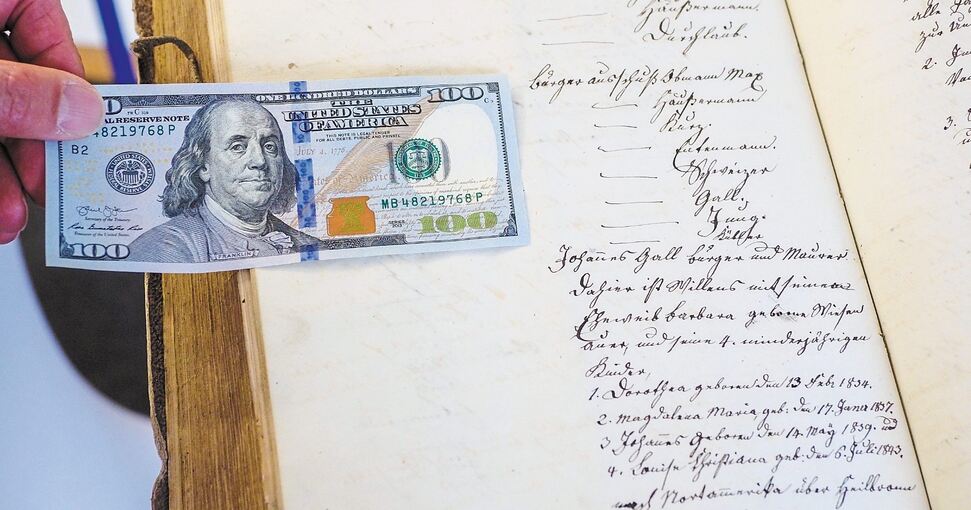 ONE HUNDRED DOLLARS
100
THE
UNITED STATES
OF AMERICA
AL RESERVE NOTE
48219768 P
THIS NOTE IS LEGAL TENDER
FOR ALL DEBTS, PUBLIC AND PRIVATE
B2
JULY 4, 1776
MB 48219768 P
Secretary of the Treasury
SERIES
2013
100
100
FRANKLIN
Häußermann.
Durchlaub.
Bürgerausschuß Obmann Max
Häußermann
Kurz.
Entenmann.
Schweizer
Gall.
Jung.
Johannes Gall Bürger und Maurer
Dahier ist Willens mit seinem
Eheweib Barbara geborne Wiesen
auer, und seine 4. minderjährigen
Kinder,
1. Dorothea geboren den 13 Feb: 1834.
2. Magdalena Maria, geb: den 17. Janu 1837.
3 Johannes Geboren den 14. May 1839. und
4. Louise Christiana geb: den 6. Juli 1843.
nach Nortamerika über Heilbronn
alle
zur
2.
3.